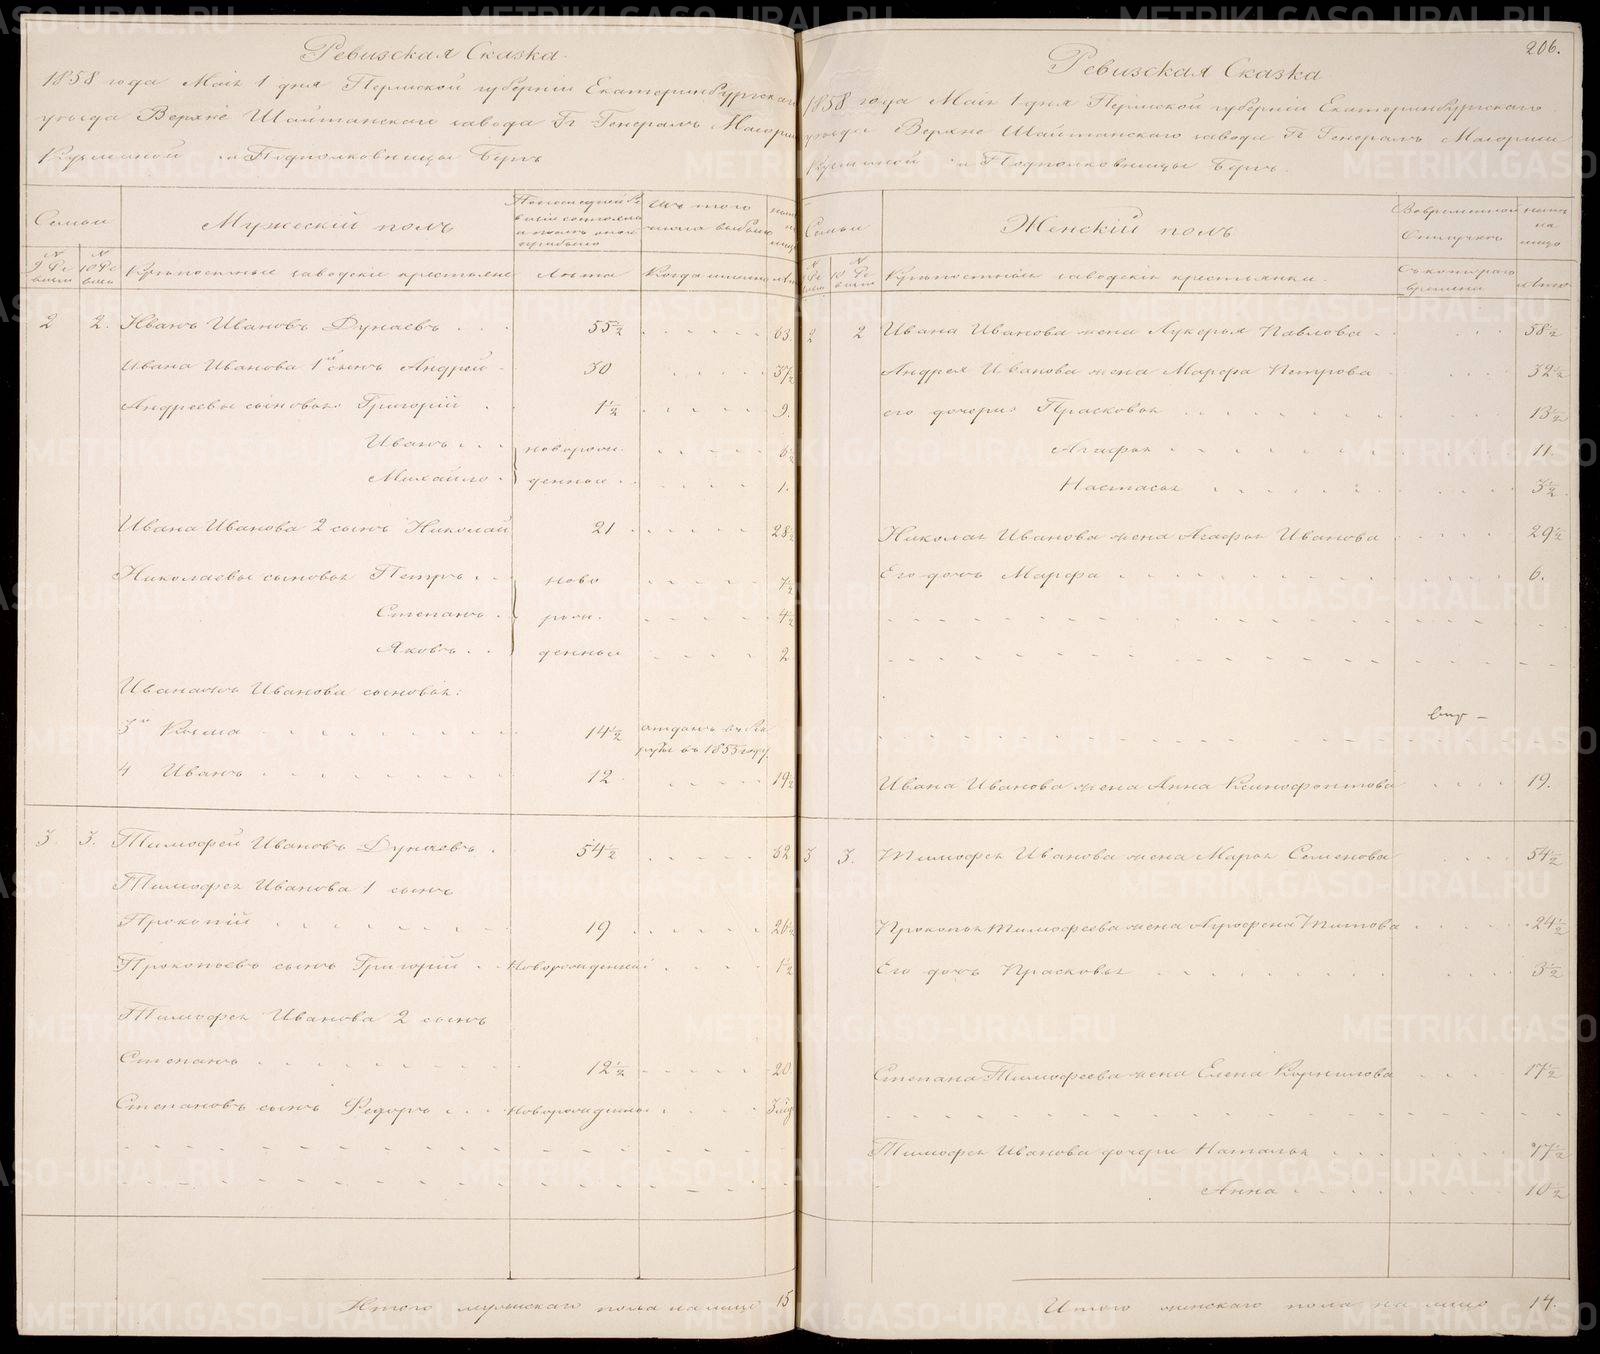 Ревизская Сказка.
1858 года Маія 1 дня Пермской губерніи Екатеринбургскаго
уѣзда Верхне Шайтанскаго завода Гг Генералъ Маіорши
Кузьминой и Подполковницы Бергъ
Семьи
Мужескій полъ
По последней Ре
визіи состояло
и послѣ оной
прибыло
Изъ того
числа выбыло
Ныне
на
лицо
№
9 Ре
визіи
№
10 Ре
визіи
Крѣпостные заводскіе крестьяне
Лѣта
Когда именно
Лѣта
2 2. Иванъ Ивановъ Дунаевъ 55½ 63.
Ивана Иванова 1й сынъ Андрей 30 37½
Андреевы сыновья Григорій 1½ 9.
Иванъ новорож- 6½
Михайло денные 1.
Ивана Иванова 2 сынъ Николай 21 28½
Николаевы сыновья Петръ ново 7½
Степанъ рож- 4½
Яковъ денные 2
Ивана Иванова сыновья:
3й Козма 14½ отданъ въ рек
руты въ 1855 году
4 Иванъ 12 19½
3. 3. Тимофей Ивановъ Дунаевъ 54½ 62
Тимофея Иванова 1 сынъ
Прокопій 19 26½
Прокопьевъ сынъ Григорій Новорожденный 1½
Тимофея Иванова 2 сынъ
Степанъ 12½ 20
Степановъ сынъ Федоръ Новорожденный
Итого мужескаго пола на лицо 15
206.
Ревизская Сказка
1858 года Маія 1 дня Пермской губерніи Екатеринбургскаго
уѣзда Верхне Шайтанскаго завода Гг Генералъ Маіорши
Кузьминой и Подполковницы Бергъ.
Семьи
Женскій полъ
Во временной
отлучкѣ
Ныне
на
лицо
№
9 Ре
визіи
№
10 Ре
визіи
Крѣпостныя заводскія крестьянки.
Съ котораго
времени
Лѣта
2 2 Ивана Иванова жена Лукерья Павлова 58½
Андрея Иванова жена Марфа Петрова 32½
его дочери: Прасковья 13½
Агафья 11.
Настасья 3½
Николая Иванова жена Агафья Иванова 29½
Его дочь Марфа 6.
Ивана Иванова жена Анна Ксенофонтова 19.
3 3. Тимофея Иванова жена Марья Семенова 54½
Прокопья Тимофеева жена Аграфена Титова 24½
Его дочь Прасковья 3½
Степана Тимофеева жена Елена Корнилова 17½
Тимофея Иванова дочери Наталья 17½
Анна 10½
Итого женскаго пола на лицо 14.
METRIKI.GASO-URAL.RU